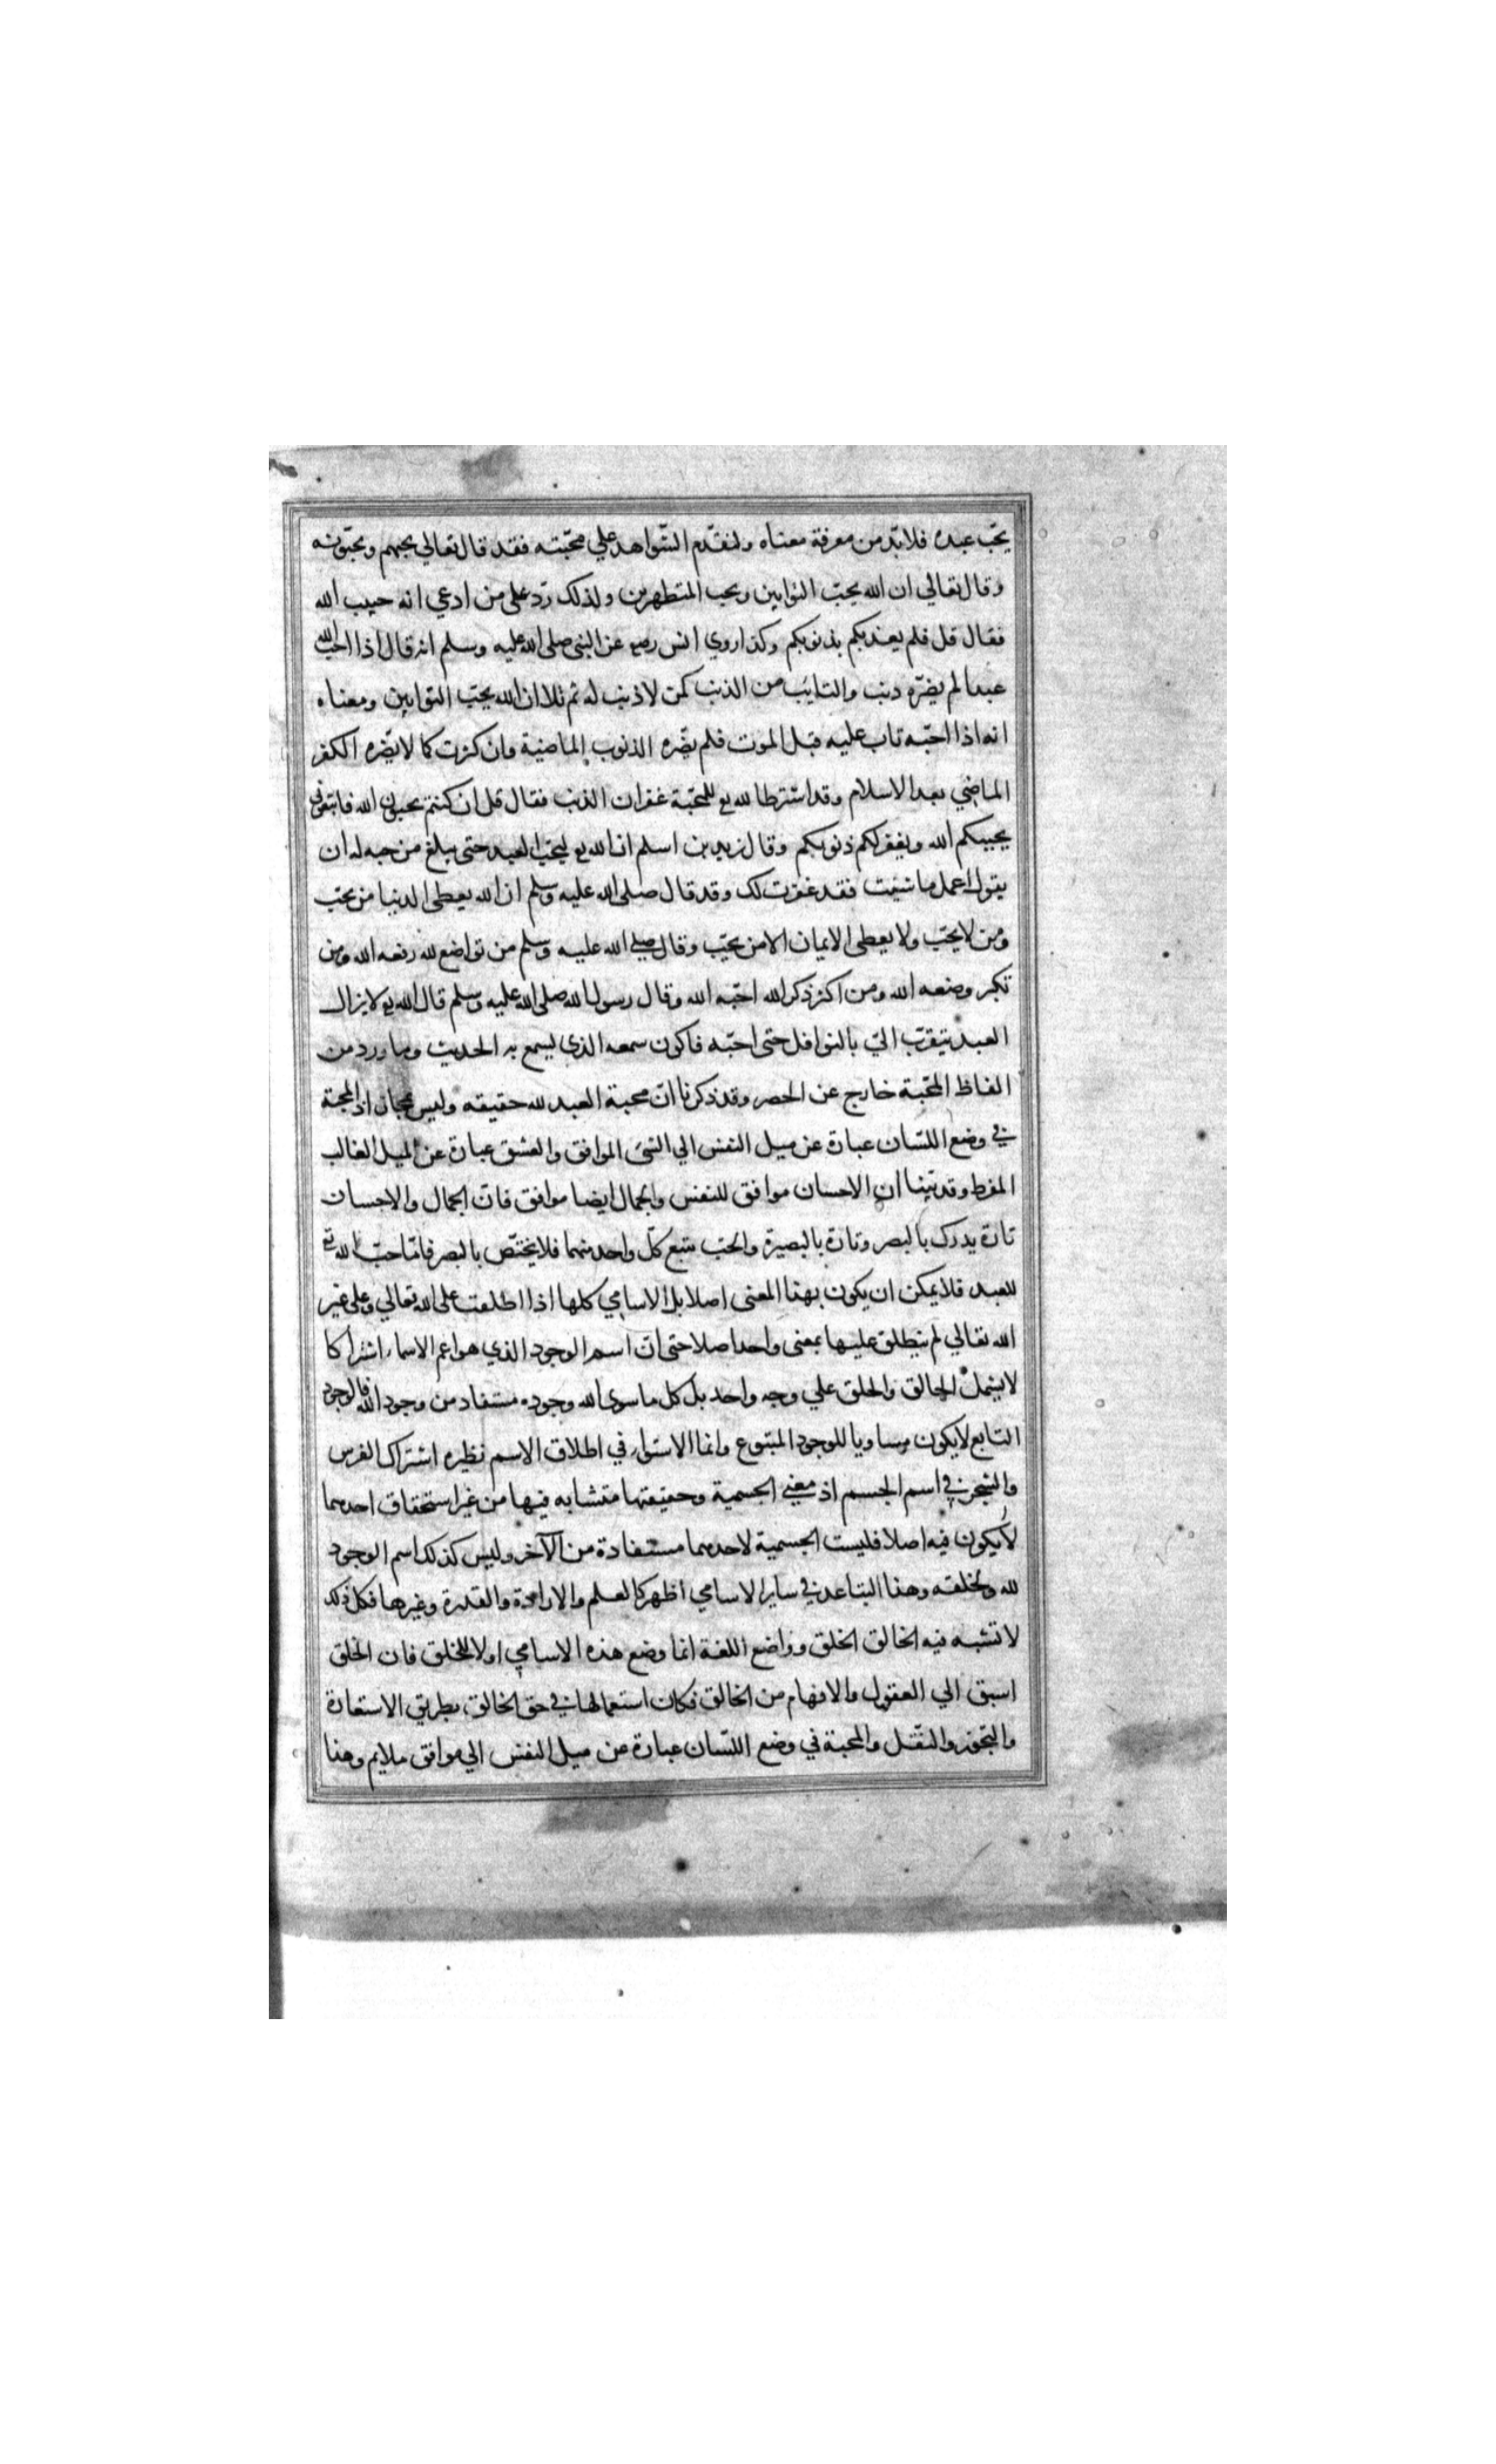 يحبّ عبده فلا بدّ من معرفة معناه ولنقدّم الشواهد علي محبّته فقد قال تعالي يحبهم ويحبّونه
وقال تعالي ان الله يحبّ التوابين ويحب المتطهرين ولذلك ردّ على من ادعي انه حبيب الله
فقال قل فلم يعذبكم بذنوبكم وكذا روي انس رضع عن النبي صلى الله عليه وسلم انه قال اذا احب الله
عبدا لم يضرّه ذنب والتايب من الذنب كمن لا ذنب له ثم تلا ان الله يحبّ التوابين ومعناه
انه اذا احبّه تاب عليه قبل الموت فلم يضره الذنوب الماضية وان كثرت كما لا يضره الكفر
الماضي بعد الاسلام وقد اشترط الله تع للمحبّة غفران الذنب فقال قل ان كنتم تحبون الله فاتبعوني
يحببكم الله ويغفر لكم ذنوبكم وقال زيد بن اسلم ان الله تع ليحبّ العبد حتى يبلغ من حبه له ان
يقول اعمل ما شئت فقد غفرت لك وقد قال صلى الله عليه وسلم ان الله يعطى الدنيا من يحبّ
ومن لا يحبّ ولا يعطى الايمان الا من يحبّ وقال صلى الله عليه وسلم من تواضع لله رفعه الله ومن
تكبر وضعه الله ومن اكثر ذكر الله احبّه الله وقال رسول الله صلى الله عليه وسلم قال الله تع لا يزال
العبد يتقرّب اليّ بالنوافل حتى احبّه فاكون سمعه الذي يسمع به الحديث وما ورد من
الفاظ المحّبة خارج عن الحصر وقد ذكرنا انّ محبة العبد لله حقيقه وليس بمجاز اذ المحبة
في وضع اللسّان عبارة عن ميل النفس الي الشئ الموافق والعشق عبارة عن الميل الغالب
المفرط وقد بيّنا ان الاحسان موافق للنفس والجمال ايضا موافق فانّ الجمال والاحسان
تارة يدرك بالبصر وتارة بالبصيرة والحبّ يتبع كلّ واحد منهما فلا يختصّ بالبصر فامّا حبّ الله تع
للعبد فلا يمكن ان يكون بهذا المعنى اصلا بل الاسامي كلها اذا اطلقت على الله تعالي وعلى غير
الله تعالي لم ينطلق عليها بمعنى واحد اصلا حتى انّ اسم الوجود الذي هو اعم الاسماء اشتراكا
لا يشمل الخالق والخلق علي وجه واحد بل كل ما سوى الله وجوده مستفاد من وجود الله فالوجود
التابع لا يكون مساويا للوجود المتبوع وانما الاستواء في اطلاق الاسم نظيره اشتراك الفرس
والشجر في اسم الجسم اذ معني الجسمية وحقيقتها متشابه فيها من غير استحقاق احدهما
لأن يكون فيه اصلا فليست الجسمية لاحدهما مستفادة من الآخر وليس كذلك اسم الوجود
لله ولخلقه وهذا التباعد في ساير الاسامي اظهر كالعلم والارادة والقدرة وغيرها فكل ذلك
لا تشبه فيه الخالق الخلق وواضع اللغة انما وضع هذه الاسامي اولا للخلق فان الخلق
اسبق الي العقول والافهام من الخالق فكان استعمالها في حق الخالق بطريق الاستعارة
والتجوّز والنقّل والمحبة في وضع اللسّان عبارة عن ميل النفس الي موافق ملايم وهذا